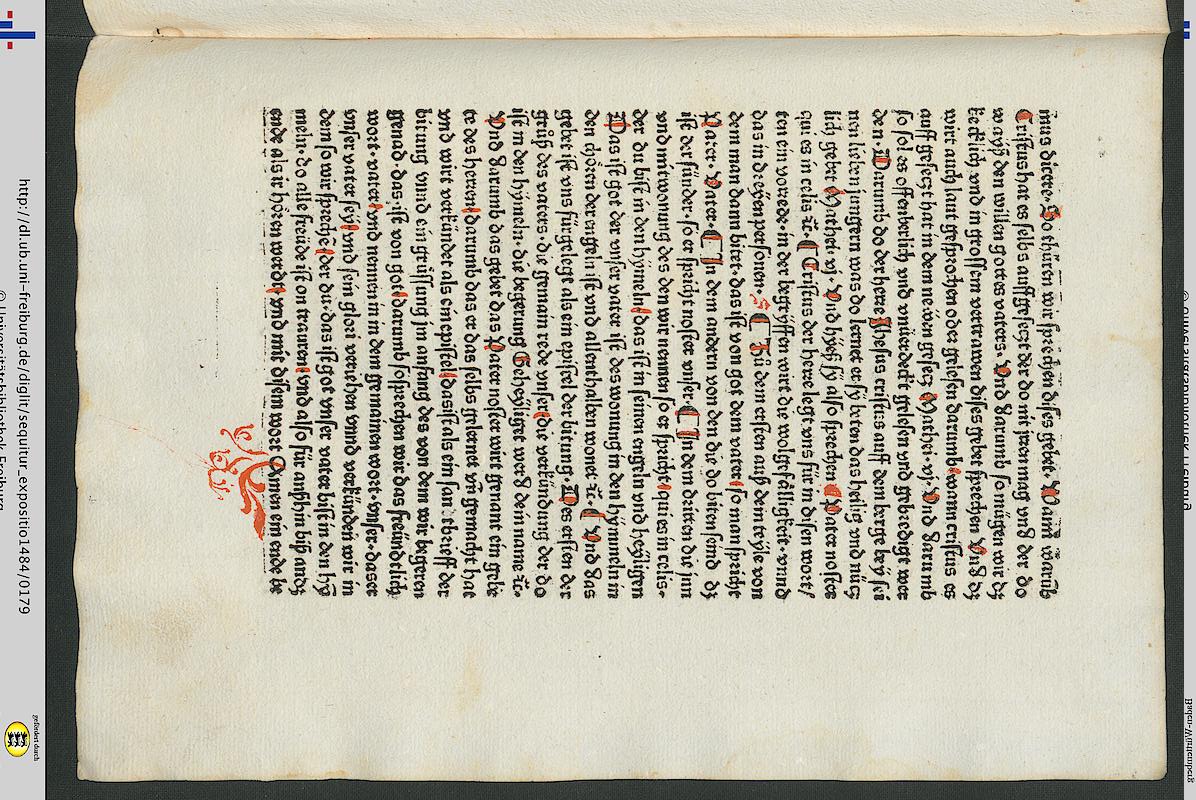 mus dicere. So thüren wir sprechen dises gebet. Wann warūb
Cristus hat es selbs auffgesetzt der do nit irren mag vnd der do
wayß den willen gottes vaters. Vnd darumb so mügen wir dz
kecklich vnd in grossem vertrawen dises gebet sprechen Vnd dz
wirt auch laut gesprochen oder gelesen darumb wann cristus es
auff gesetzt hat in dem newen gesetz Mathei. vj. Vnd darumb
so sol es offenberlich vnd vnuerdeckt gelesen vnd geprediget wer
den. Darumb do der herre Jhesus cristus auff dem berge bey sei
nen lieben jungern was do lernet er sy biten das heilig vnd nütz
lich gebet Mathei. vj. Vnd hyeß sy also sprechen Pater noster
qui es in celis ꝛc. Cristus der herre legt vns für in disen wort/
ten ein vorrede. in der begryffen wirt die wolgefälligkeit. vnnd
das in dreyen personen. Zů dem ersten auß dem teyle von
dem man dann bitet. das ist von got dem vater so man spricht
Pater. Pater. In dem andern von den die do biten seind dz
ist der sünder. so er spricht noster vnser. In dem dritten die inn
vnd mitwonung des den wir nennen so er spricht qui es in celis.
der du bist in den hymeln das ist in seinen engeln vnd heyligen
Das ist got der vnser vater ist des wonung in den hymmeln in
den chören der engeln ist vnd allenthalben wonet ꝛc. Vnd das
gebet ist vns fürgelegt als ein epistel der bitung. Des ersten der
grůß des vaters. die gemain rede vnser die verkündung der do
ist in den hymeln. die begerung Geheyliget werd dein name ꝛc.
Vnd darumb das gebet das Pater noster wirt genant ein gebe
te des herren darumb das er das selbs gelernet vn̄ gemacht hat
vnd wirt verkündet als ein epistel das ist als ein santbrieff der
bitung vnnd ein grüssung im anfang des von dem wir begeren
genad. das ist von got darumb so sprechen wir das freüntlich
wort. vater vnd nennen in in dem gemainen wort. vnser. das er
vnser vater sey vnd sein glori veriehen vnnd verkünden wir in
dem so wir sprechē der du. das ist got vnser vater bist in den hy
meln. do alle freüde ist on trauren vnd also für außhin biß an dz
ende als ir hören werdt vnd mit disem wort Amen ein ende be
http://dl.ub.uni-freiburg.de/diglit/sequitur_expositio1484/0179
© Universitätsbibliothek Freiburg
gefördert durch